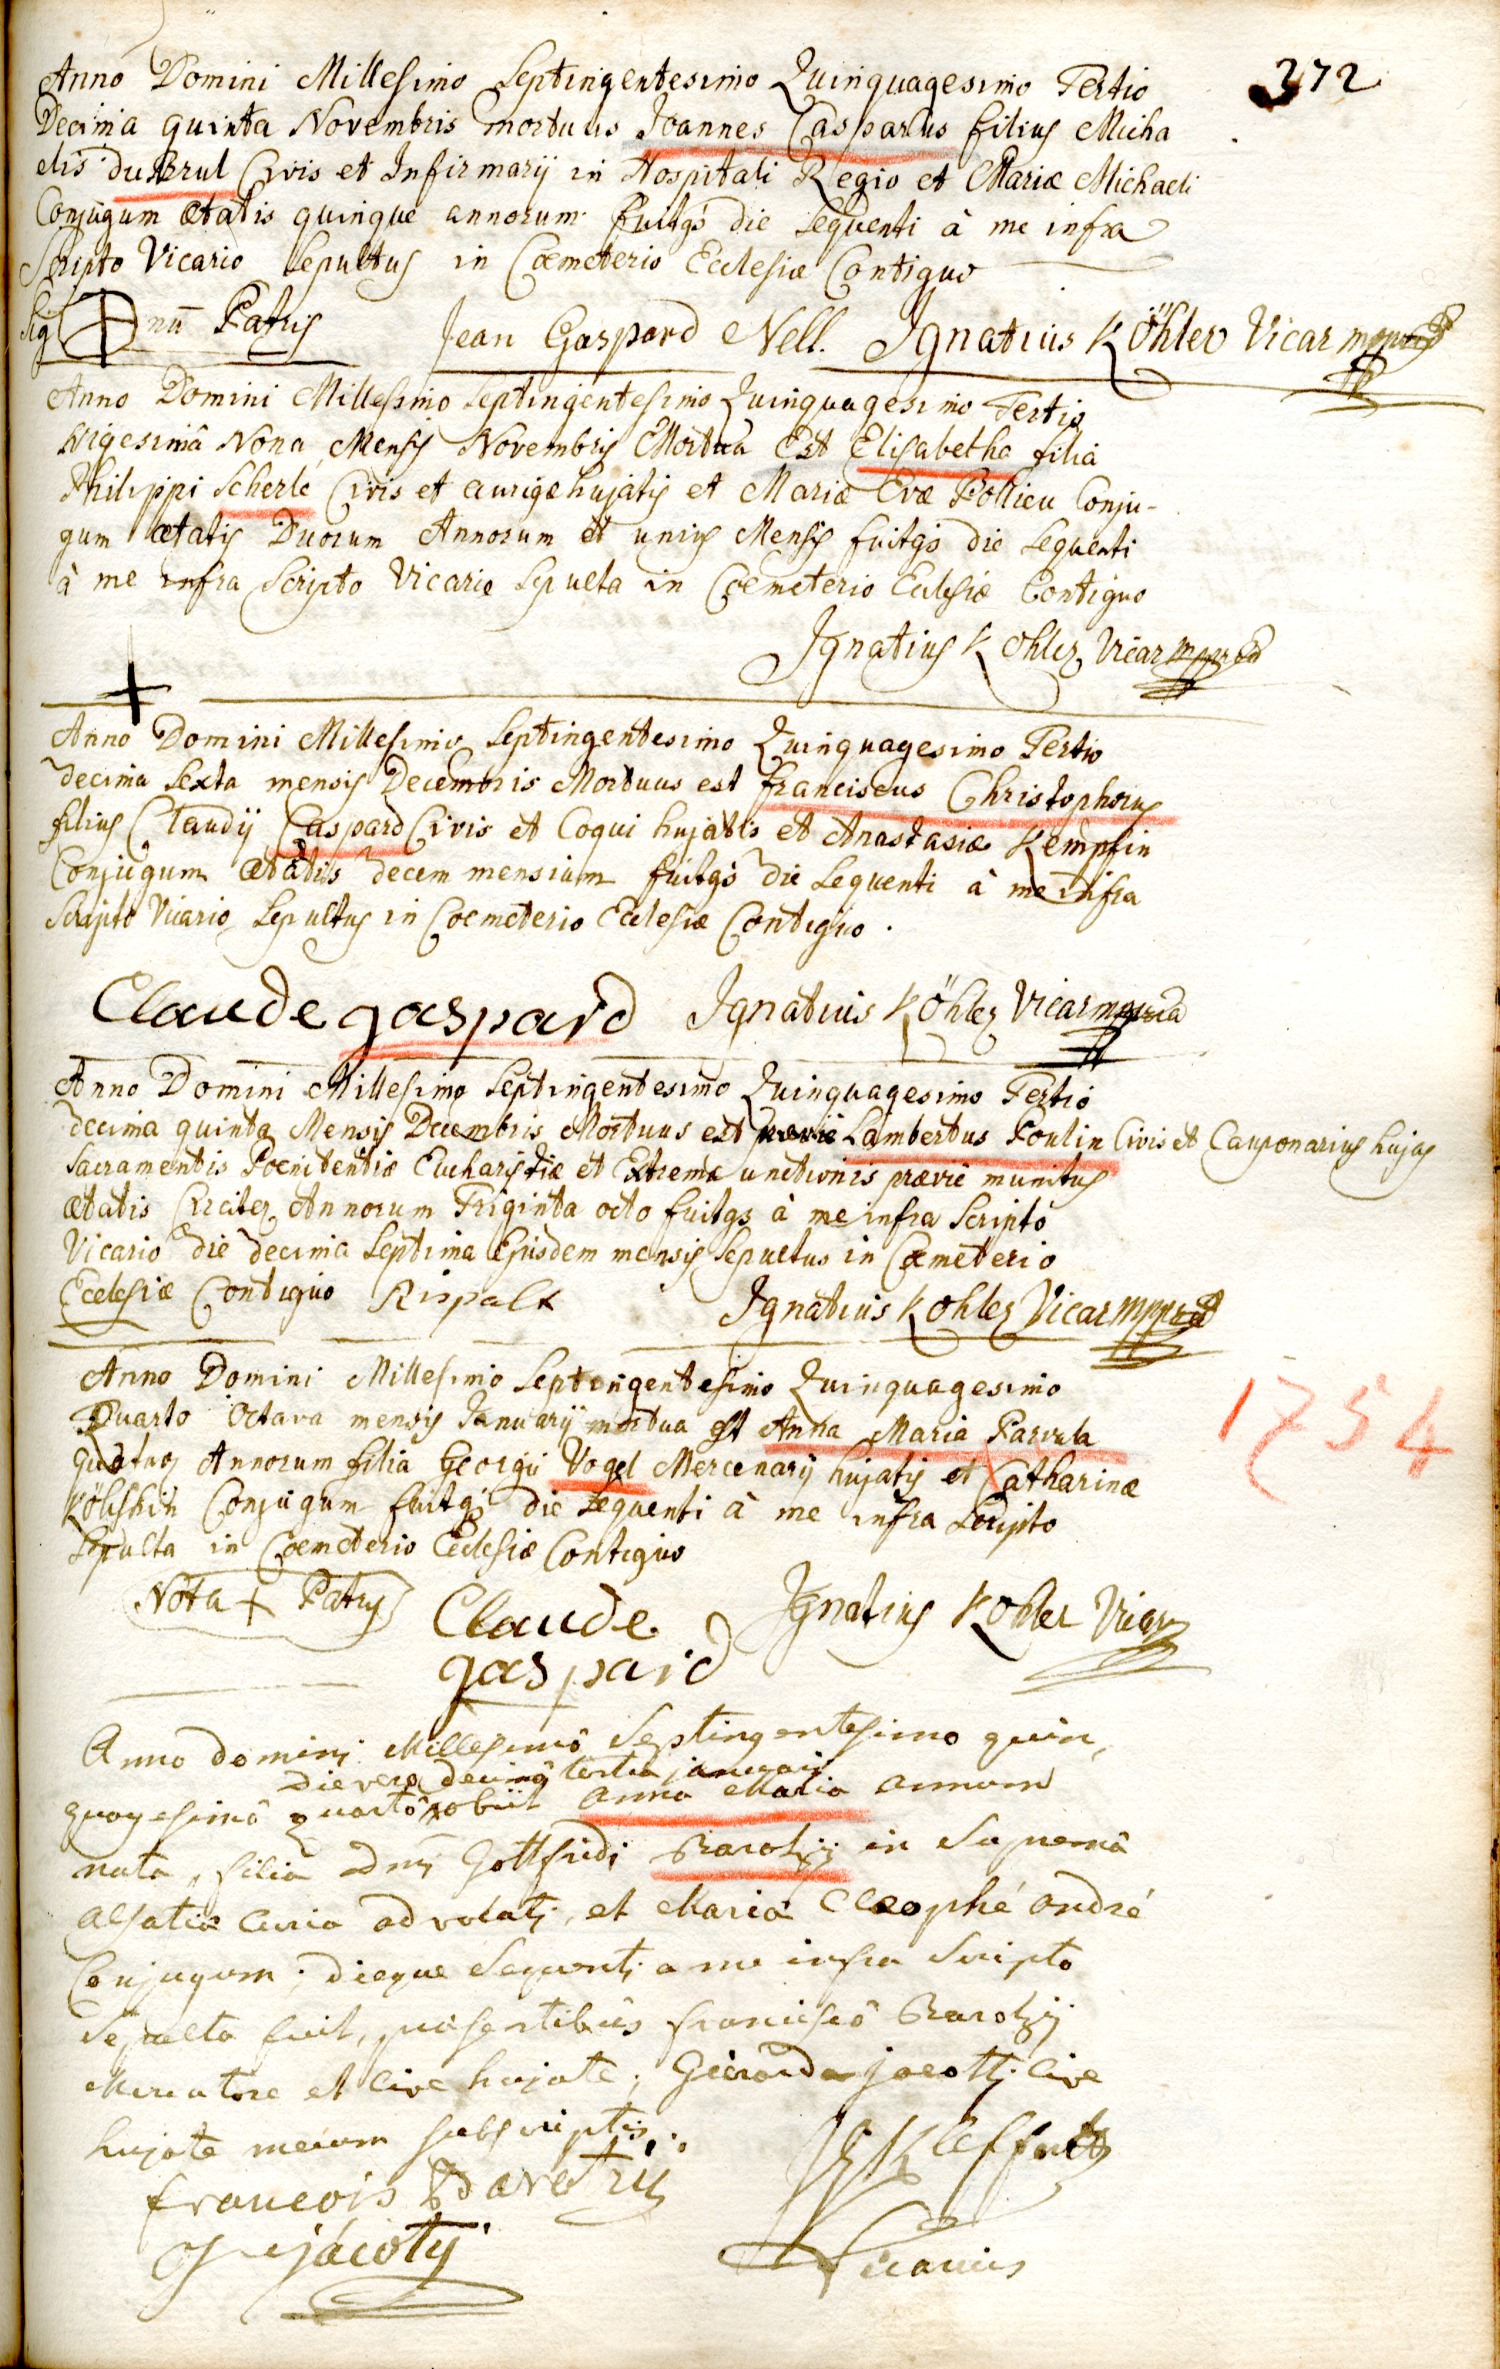 372
Anno Domini Millesimo Septingentesimo Quinquagesimo Tertio
Decima quinta Novembris mortuus Joannes Casparus filius Micha
elis dusrrul Civis et Infirmarij in Hospitali Regio et Mariæ Michaeli
Conjugum ætatis quinque annorum fuitqs die sequenti à me infra
Scripto Vicario Sepultus in Cœmeterio Ecclesiæ Contiguo
Sig nũ Patris Jean Gaspard Nell. Ignatius Köhler Vicar mppria
Anno Domini Millesimo Septingentesimo Quinquagesimo Tertio
Vigesimâ Nona Mensis Novembris Mortua Est Elisabetha filia
Philippi Scherle Civis et aurigæ hujatis et Mariæ Evæ Conju-
gum ætatis Duorum Annorum et unius Mensis fuitqs die sequenti
à me infra Scripto Vicario Sepulta in Cœmeterio Eclesiæ Contiguo
Ignatius Kohler Vicar mppria
Anno Domini Millesimo Septingentesimo Quinquagesimo Tertio
decima Sexta mensis Decembris Mortuus est franciscus Christophorus
filius Claudij Caspard Civis et Coqui hujatis et Anastasiæ Kempfin
Conjugum ætatis decem mensium fuitqs die Sequenti à me infra
Scripto Vicario Sepultus in Cœmeterio Ecclesiæ Contiguo.
Claude gaspard Ignatius Köhler Vicar mppria
Anno Domini Millesimo Septingentesimo Quinquagesimo Tertio
decima quinta Mensis Decembris Mortuus est Lambertus Poulin Civis et Cauponarius hujas
Sacramentis Pœnitentiæ Eucharistiæ et Extrema unctionis prævie munitus
ætatis Circiter Annorum Triginta octo fuitqs à me infra Scripto
Vicario die decima Septima Ejusdem mensis Sepultus in Cœmeterio
Ecclesiæ Contiguo Rispalt Ignatius Kohler Vicar mppria
Anno Domini Millesimo Septingentesimo Quinquagesimo
Quarto Octava mensis Januarij mortua est Anna Maria Parvula
1754
quatuor Annorum filia Georgii Vogel Mercenarij hujatis et Catharinæ
Conjugum fuitqs die Sequenti à me infra Scripto
Sepulta in Cœmeterio Ecclesiæ Contiguo
Nota + Patris Claude gaspard Ignatius Kohler Vicar
Anno domini Millesimô Septingentesimo quin,
die vero decimâ tertia januarii
quagesimô quartô obiit anna Maria annum
nata, filia Dni Gottfridi Barotzij in Supremâ
alsatiæ Curia advocati, et Maria Cleophé André
Conjugum; dieque Sequenti a me infra Scripto
Sepulta fuit, præsentibus franciscô Barotzij
Mercatore et Cive hujate; Gerardo jacotti Cive
hujate mecum subscriptis.
francois Barotzij
G jácotij
Vicarius